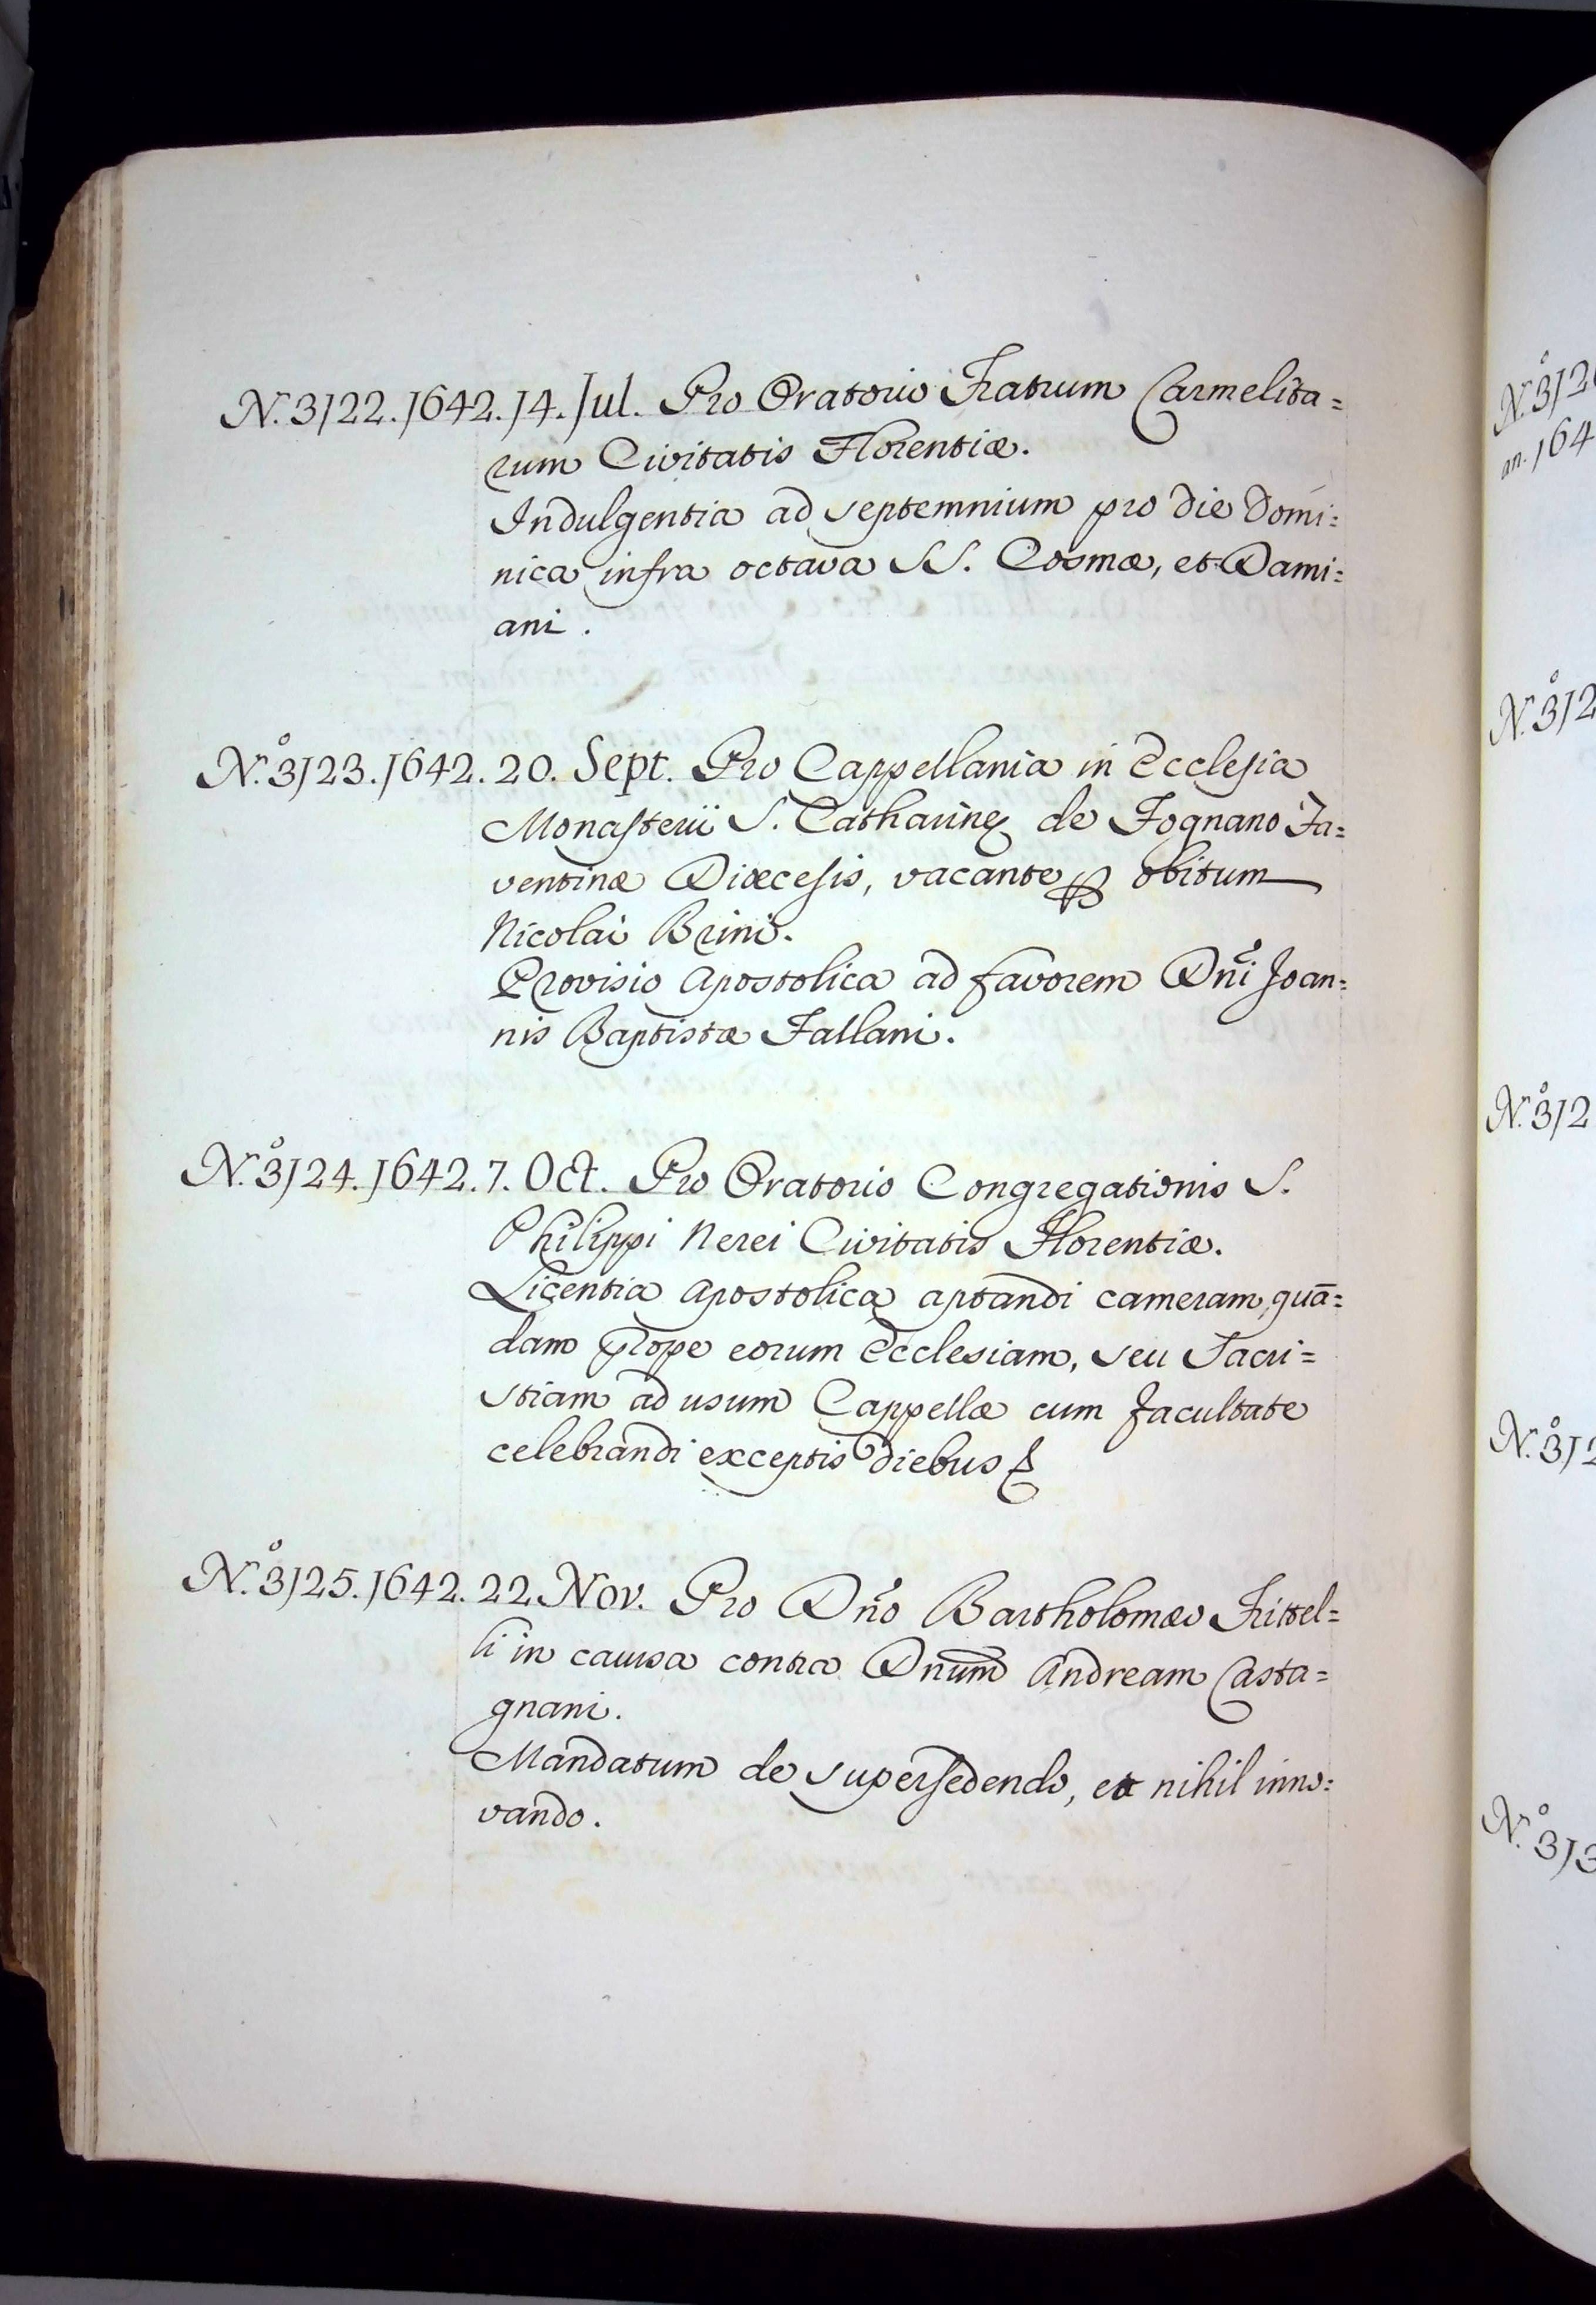 N. 3122. 1642. 14. Jul. Pro Oratorio Fratrum Carmelita=
rum Civitatis Florentiæ.
Indulgentia ad septemnium pro die Domi=
nica infra octava SS. Cosmæ, et Dami=
ani.
N.º 3123. 1642. 20. Sept. Pro Cappellania in Ecclesia
Monasterii S. Catharinę de Fognano Fa=
ventinæ Diœcesis, vacante ꝑ obitum
Nicolai Brini.
Provisio Apostolica ad favorem Dñi Joan=
nis Baptistæ Fallani.
N.º 3124. 1642. 7. Oct. Pro Oratorio Congregationis S.
Philippi Nerei Civitatis Florentiæ.
Licentia Apostolica aptandi cameram quā=
dam prope eorum Ecclesiam, seu Sacri=
stiam ad usum Cappellæ cum facultate
celebrandi exceptis diebus &
N.º 3125. 1642. 22. Nov. Pro Dño Bartholomæo Frittel=
li in causa contra Dnum Andream Casta=
gnani.
Mandatum de supersedendo, et nihil inno=
vando.
N.º 312
an. 164
N.º 312
N.º 312
N.º 312
N.º 313